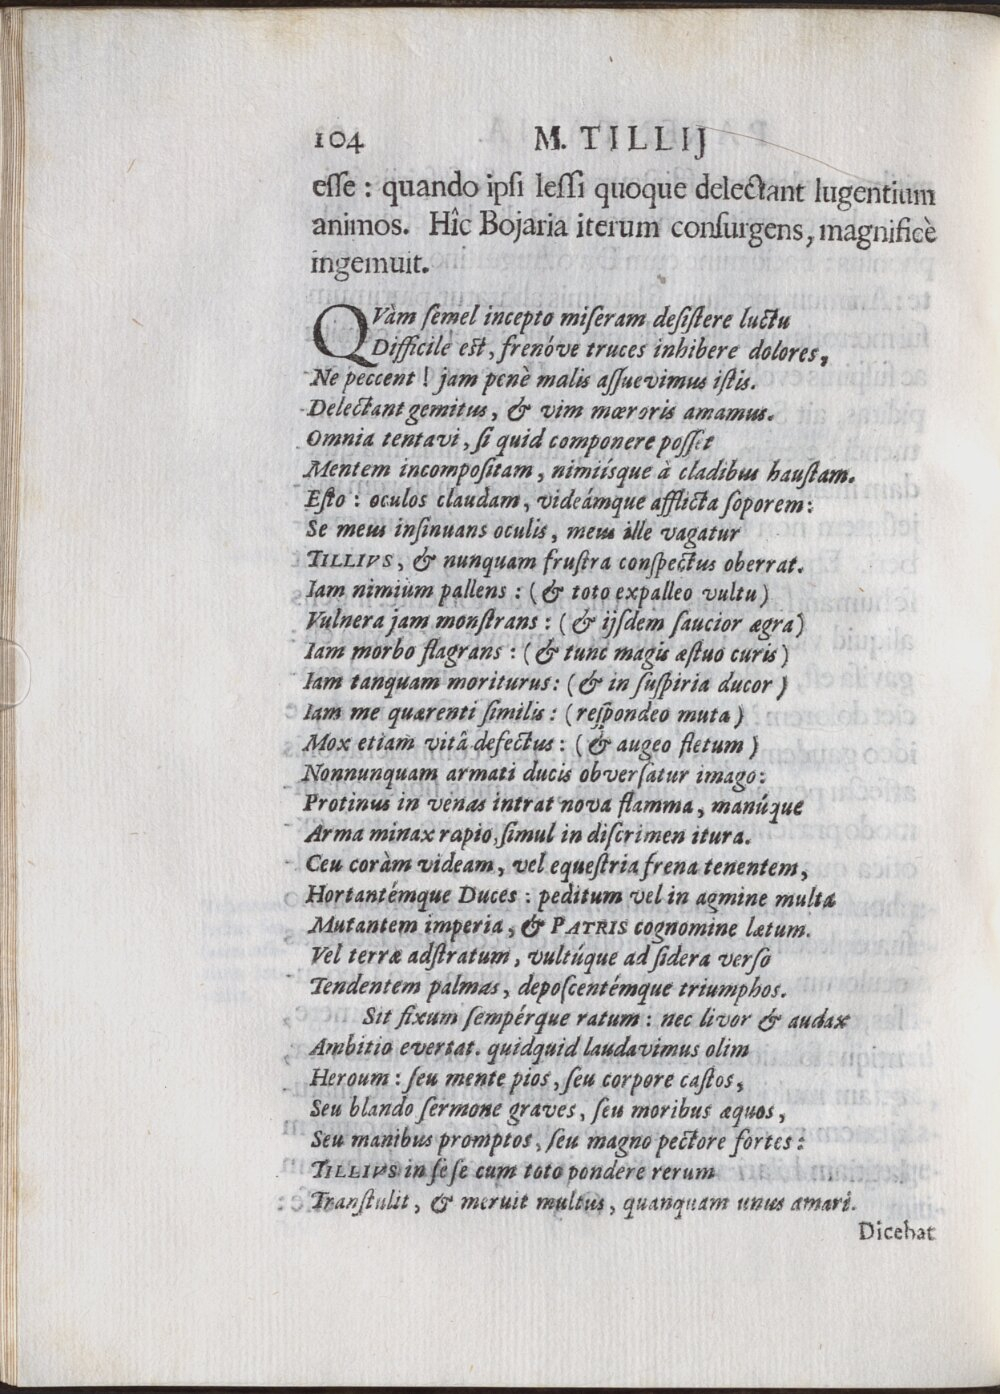 104 M. TILLIJ
eſſe : quando ipſi leſſi quoque delectant lugentium
animos. Hîc Bojaria iterum conſurgens, magnificè
ingemuit.
QVàm ſemel incepto miſeram deſiſtere luctu
Difficile eſt, frenóve truces inhibere dolores,
Ne peccent ! jam penè malis aſſuevimus iſtis.
Delectant gemitus, & vim mœroris amamus.
Omnia tentavi, ſi quid componere poſſet
Mentem incompoſitam, nimiísque à cladibus hauſtam.
Eſto : oculos claudam, videámque afflicta ſoporem:
Se meus inſinuans oculis, meus ille vagatur
TILLIVS, & nunquam fruſtra conſpectus oberrat.
Iam nimium pallens : (& toto expalleo vultu)
Vulnera jam monſtrans : (& ijſdem ſaucior ægra)
Iam morbo flagrans : (& tunc magis æſtuo curis)
Iam tanquam moriturus: (& in ſuſpiria ducor)
Iam me quærenti ſimilis : (reſpondeo muta)
Mox etiam vitâ defectus : (& augeo fletum)
Nonnunquam armati ducis obverſatur imago:
Protinus in venas intrat nova flamma, manúque
Arma minax rapio, ſimul in diſcrimen itura.
Ceu coràm videam, vel equeſtria frena tenentem,
Hortantémque Duces : peditum vel in agmine multa
Mutantem imperia, & PATRIS cognomine lætum.
Vel terræ adſtratum, vultúque ad ſidera verſo
Tendentem palmas, depoſcentémque triumphos.
Sit fixum ſempérque ratum : nec livor & audax
Ambitio evertat. quidquid laudavimus olim
Heroum : ſeu mente pios, ſeu corpore caſtos,
Seu blando ſermone graves, ſeu moribus æquos,
Seu manibus promptos, ſeu magno pectore fortes :
TILLIVS in ſeſe cum toto pondere rerum
Tranſtulit, & meruit multus, quanquam unus amari.
Dicebat